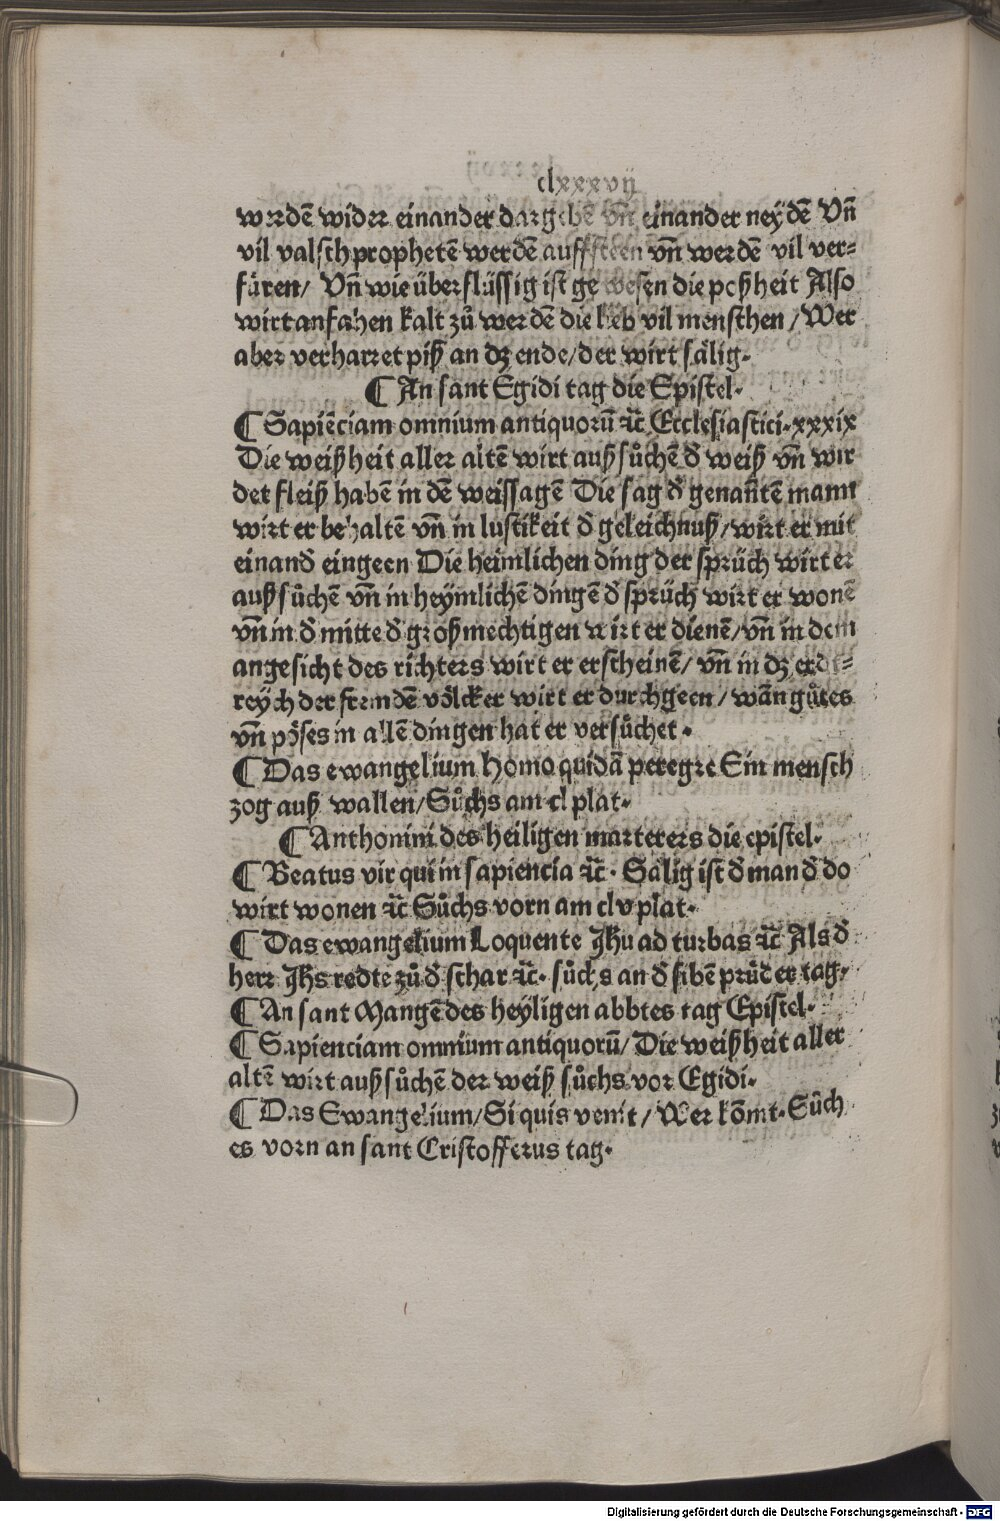 clxxxvij
werdẽ wider einander dargebẽ vñ einander neydẽ Vñ
vil valsch prophetẽ werdẽ auffsteen vñ werdẽ vil ver-
füren/ Vñ wie überflüssig ist gewesen die poßheit Also
wirt anfahen kalt zů werdẽ die lieb vil menschen/Wer
aber verharret piß an dz ende/der wirt sälig.
¶ An sant Egidi tag die Epistel.
¶ Sapiẽciam omnium antiquorũ ꝛc̃ Ecclesiastici.xxxix
Die weißheit aller altẽ wirt außsůchẽ d̕ weiß vñ wir
det fleiß habẽ in dẽ weissagẽ Die sag d̕ genañtẽ mann
wirt er behaltẽ vñ in lustikeit d̕ geleichnuß/wirt er mit
einand̕ eingeen Die heimlichen ding der sprüch wirt er
außsůchẽ vñ in heymlichẽ dingẽ d̕ sprüch wirt er wonẽ
vñ in d̕ mitte d̕ großmechtigen wirt er dienẽ/vñ in dem
angesicht des richters wirt er erscheinẽ/ vñ in dz erdt-
reych der fremdẽ völcker wirt er durchgeen/wãn gůtes
vñ pöses in allẽ dingen hat er versůchet.
¶ Das ewangelium Homo quidã peregre Ein mensch
zog auß wallen/Sůchs am cl plat.
¶ Anthonini des heiligen marterers die epistel.
¶ Beatus vir qui in sapiencia ꝛc̃. Sälig ist d̕ man d̕ do
wirt wonen ꝛc̃ Sůchs vorn am clv plat.
¶ Das ewangelium Loquente Jhu ad turbas ꝛc̃ Als d̕
herr Jhs redte zů d̕ schar ꝛc̃. sůchs an d̕ sibẽ prüder tag.
¶ An sant Mangẽ des heyligen abbtes tag Epistel.
¶ Sapienciam omnium antiquorũ/Die weißheit aller
altẽ wirt außsůchẽ der weiß sůchs vor Egidi.
¶ Das Ewangelium/Si quis venit/Wer kõmt.Sůch
es vorn an sant Cristofferus tag.
Digitalisierung gefördert durch die Deutsche Forschungsgemeinschaft - DFG